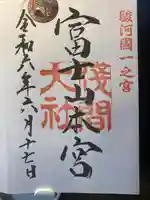 駿河國一之宮
富士山本宮
淺間大社
令和六年六月十七日